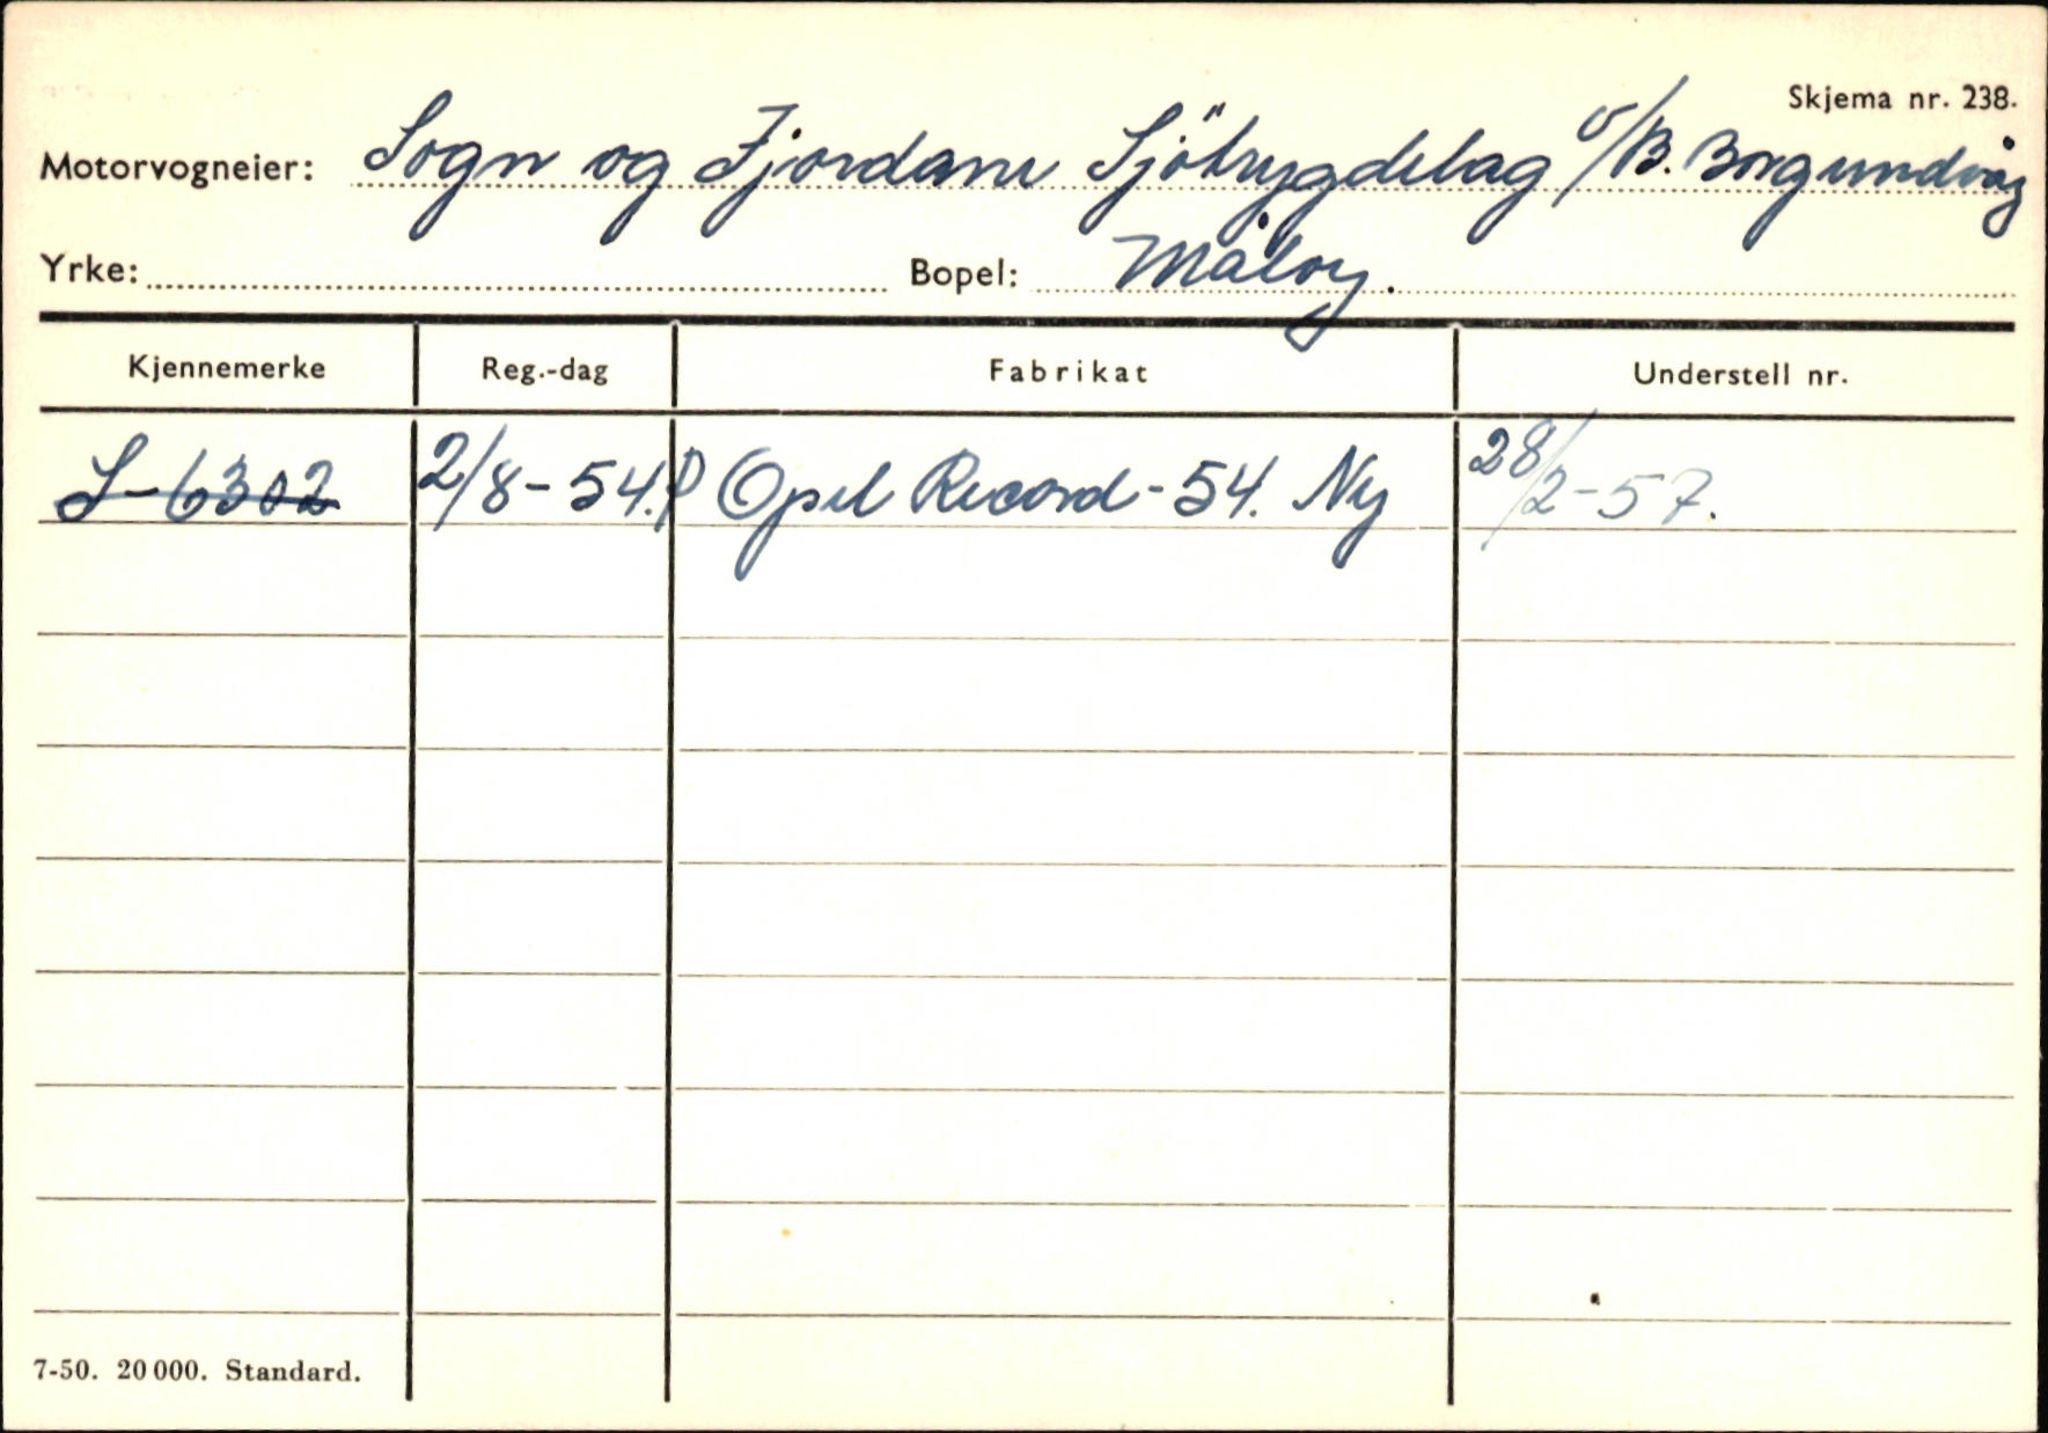 Skjema nr. 238.
Motorvogneier: Sogn og Fjordane Sjöbygdelag v/B. Borgundvåg
Yrke: Bopel: Måloy.
Kjennemerke Reg.-dag Fabrikat Understell nr.
S-6302 2/8-54. P Opel Record-54. Ny 28/2-57.
7-50. 20 000. Standard.